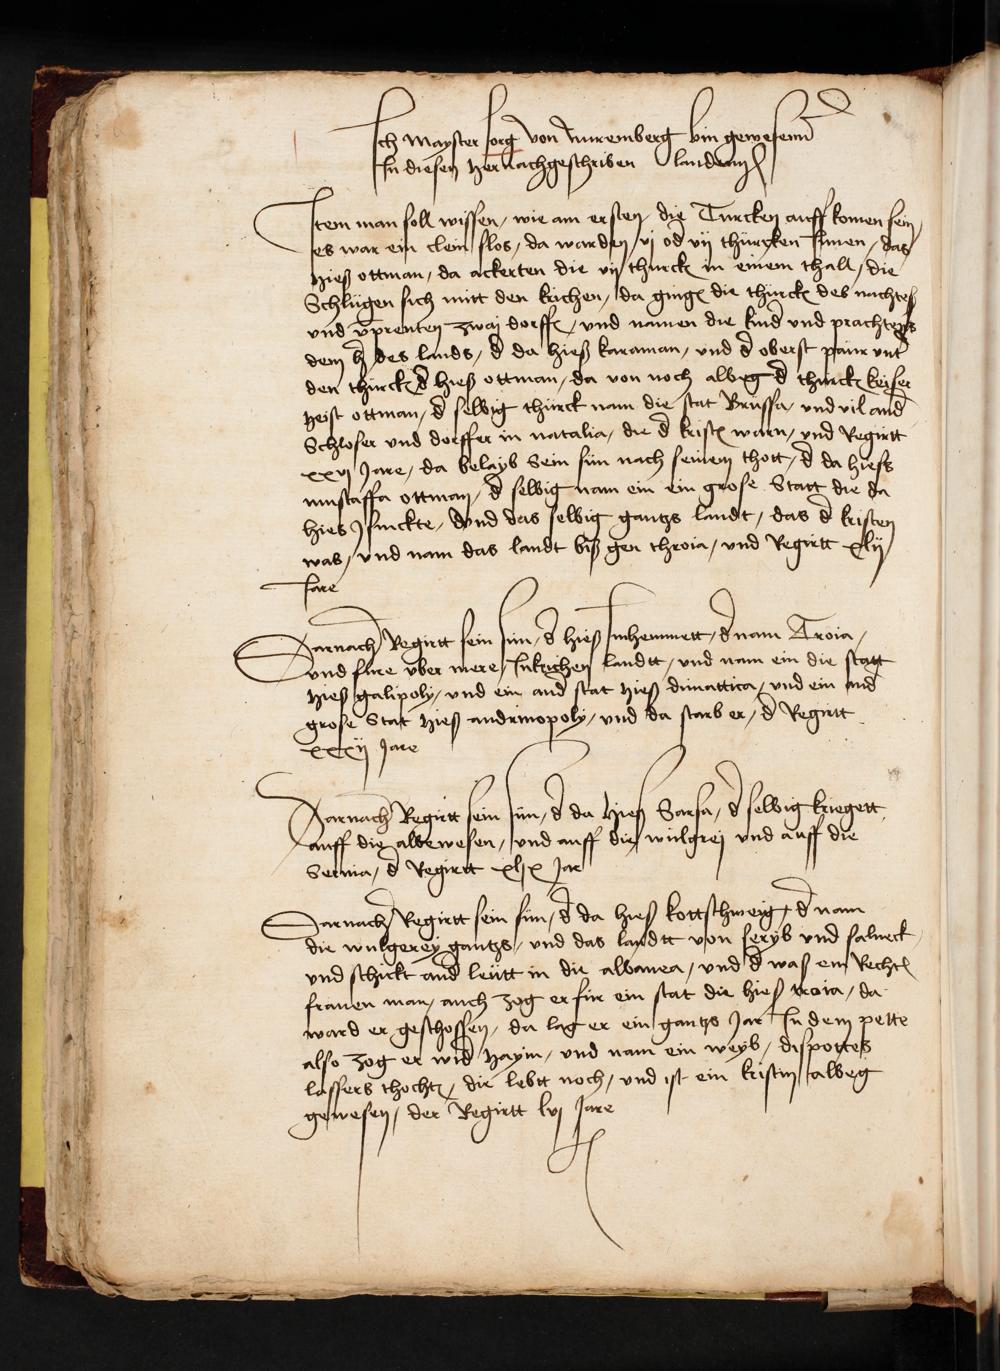 Ich Mayster Jorg von Nuremberg bin gewesenn
In diesen hernachgeschriben landenn
Item man soll wissen / wie am ersten / die Turcken auff komen sein /
es war ein clein slos / da warden / vj od vij thürcken Innen / das
hieß ottman / da ackerten die vij thurck in einem thall / die
Schlügen sich mitt den krichen / da ging die thürck des nachtes
vnd vprenten zwaj dorff / vnd namen die kind vnd prachtens
dem h des lands / d da hieß karaman / und d oberst paur unt
den thürck d hieß ottman / da von noch albeg d thurck keiser
heist ottman / d selbig thürck nam die stat Brussa / und vil and
Schloser und dorffer in natalia / die d krist warn / und Regirtt
xxvj Jare / da belayb Sein sün nach seinem thott / d da hiess
mustaffa ottman / d selbig nam ein ein grose Statt die da
hies Jsnickte / Vnd das selbig gantzs landt / das d kristen
was / vnd nam das landt biß gen throia / und Regirtt xlij
Jare
Darnach Regirtt sein sün / d hieß Imhemmett / d nam Troia /
vnd fure vber mere / Inkrichen landtt / vnd nam ein die statt
hieß galipoly / vnd ein and stat hieß dimattica / vnd ein and
grose Stat hieß andrinopoly / vnd da starb er / d Regirtt
xxxij Jare
Darnach Regirtt sein sün / d da hieß Sarsa / d selbig kriegett
auff die albewesen / vnd auff die wulgrej vnd auff die
Seruia / d Regirtt xlix Jar
Darnach Regirtt sein sün / d da hieß kottschweig / d nam
die wulgerey gantzs / vnd das landtt von seryb vnd salneck
vnd schickt and leütt in die albanea / vnd d waß ein Recht
frauen man / auch zog er für ein stat die hieß troia / da
ward er geschossen / da lag er ein gantzs Jar In dem pette
also zog er wid haym / vnd nam ein weyb / dispottes
lassers thocht / die lebtt noch / vnd ist ein kristin albeg
gewesen / der Regirtt lvj Jare